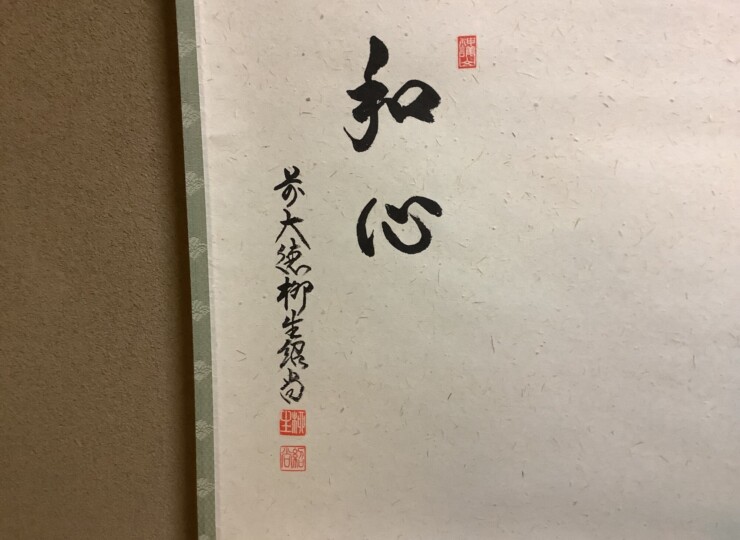 和心
前大徳柳生紹尚
紹尚